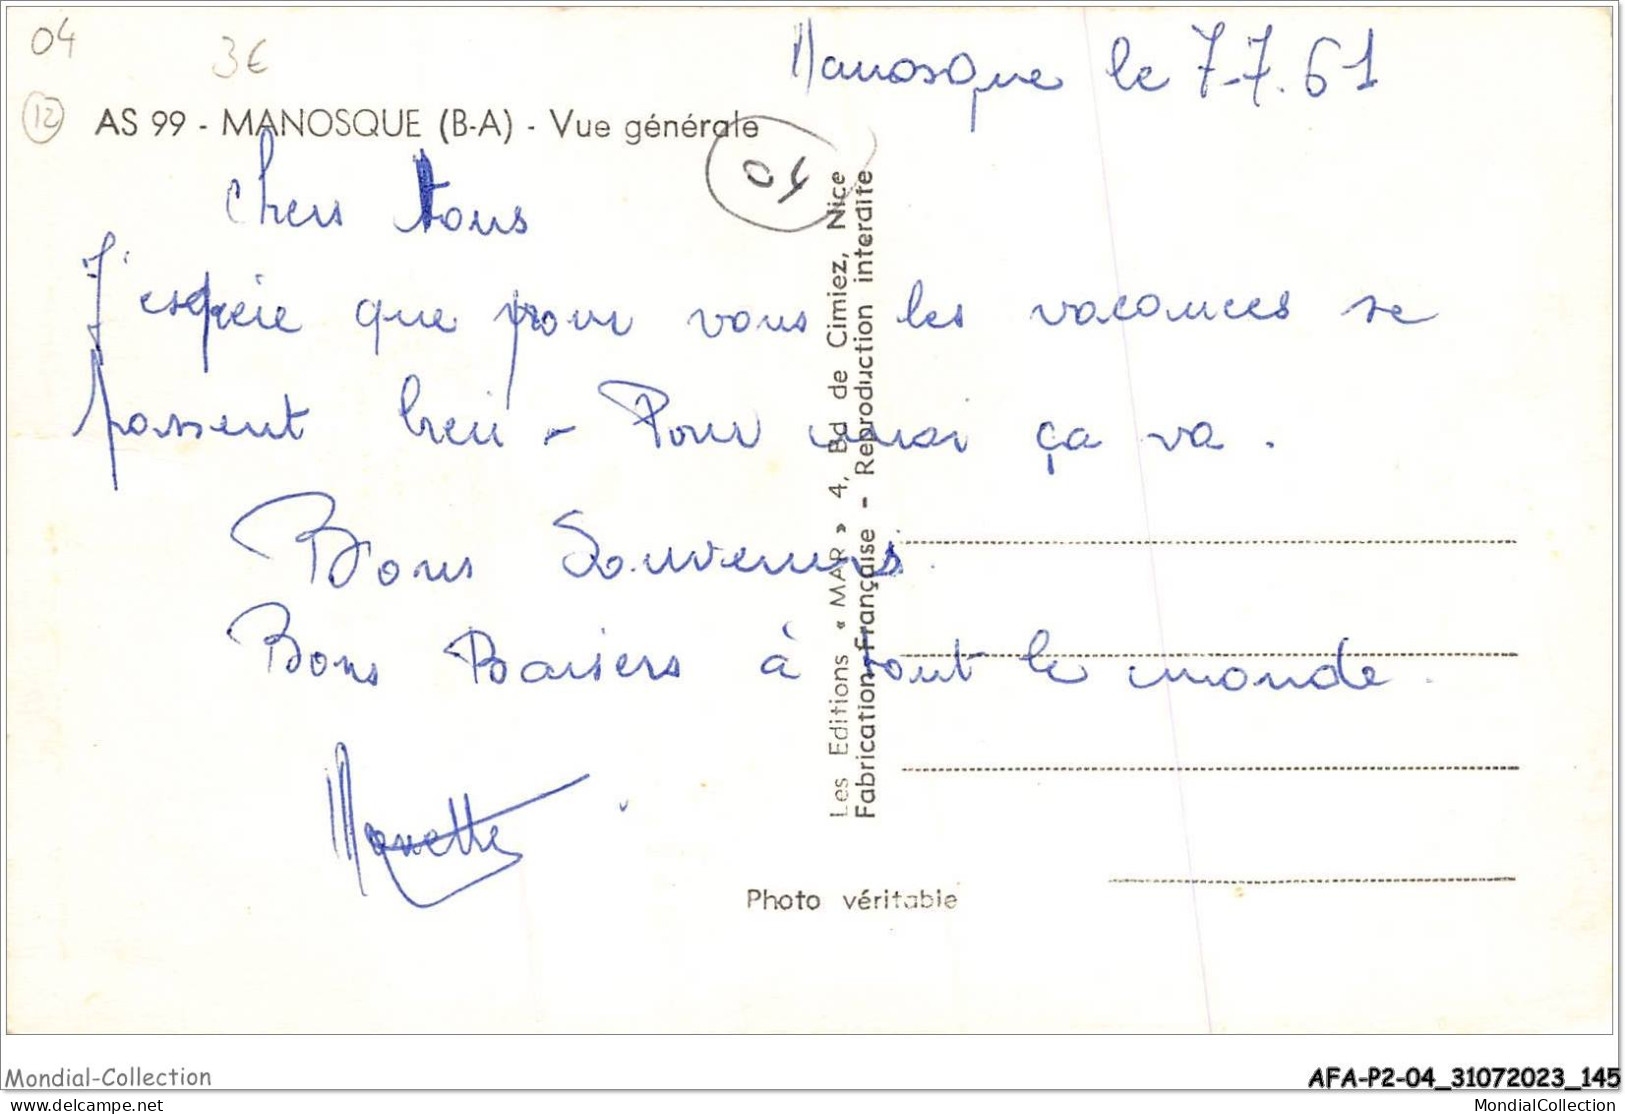 04
3€
Manosque le 7-7.61
12
AS 99 - MANOSQUE (B-A) - Vue générale
04
Chers tous
J'espère que pour vous les vacances se
passent bien - Pour moi ça va.
Bons Souvenirs.
Bons Baisers à tout le monde.
Les Editions « MAR » 4, Bd de Cimiez, Nice
Fabrication Française - Reproduction interdite
Photo véritable
Mondial-Collection
AFA-P2-04_31072023_145
www.mondial-collection.com
MondialCollection